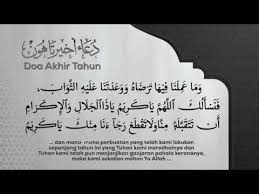 دعاء أخير تاهون
Doa Akhir Tahun
وَمَا عَمِلْنَا فِيهَا تَرْضَاهُ وَوَعَدْتَنَا عَلَيْهِ الثَّوَابَ،
فَنَسْأَلُكَ اللَّهُمَّ يَا كَرِيْمُ يَا ذَا الْجَلَالِ وَالْإِكْرَامِ
أَنْ تَتَقَبَّلَهُ مِنَّا وَلَا تَقْطَعْ رَجَآءَنَا مِنْكَ يَا كَرِيْمُ
... dan mana-mana perbuatan yang telah kami lakukan
sepanjang tahun ini yang Tuhan kami meredhainya dan
Tuhan kami telah pun menjanjikan ganjaran pahala kerananya,
maka kami sekalian mohon Ya Allah ...